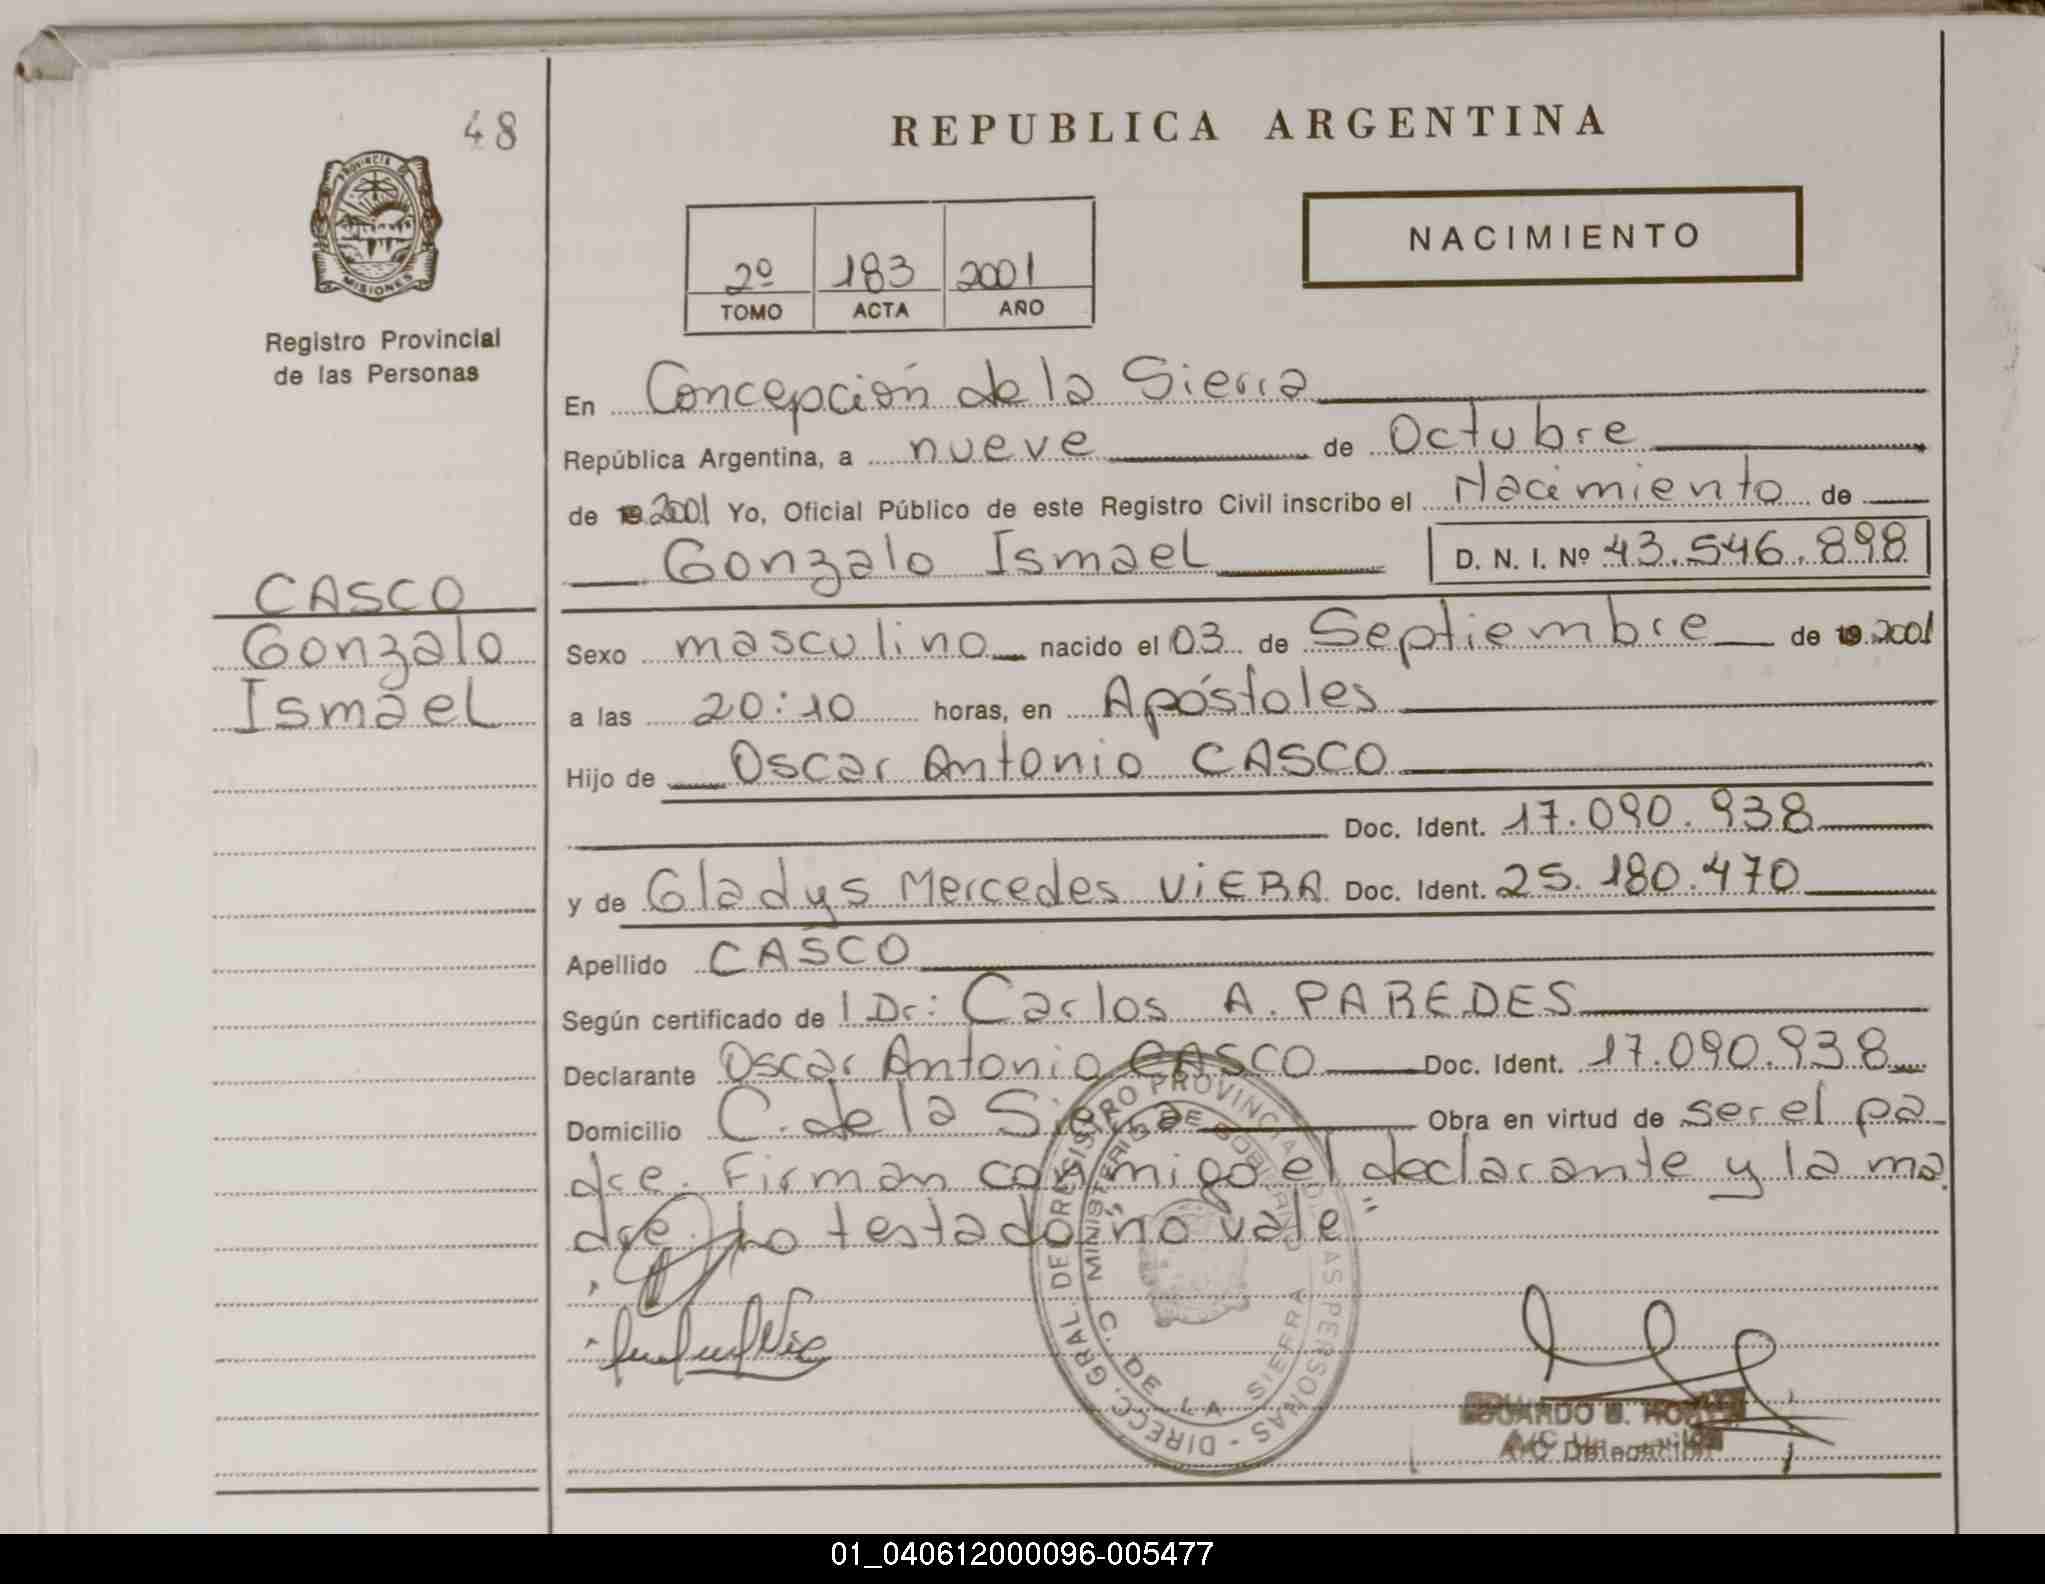 48
REPUBLICA ARGENTINA
PROVINCIA DE
MISIONES
Registro Provincial
de las Personas
2º 183 2001
TOMO ACTA AÑO
NACIMIENTO
En Concepción de la Sierra
República Argentina, a nueve de Octubre
de 2001 Yo, Oficial Público de este Registro Civil inscribo el Nacimiento de
Gonzalo Ismael D. N. I. Nº 43.546.898
CASCO
Gonzalo
Ismael
Sexo masculino nacido el 03 de Septiembre de 2001
a las 20:10 horas, en Apóstoles
Hijo de Oscar Antonio CASCO
Doc. Ident. 17.090.938
y de Gladys Mercedes VIERA Doc. Ident. 25.180.470
Apellido CASCO
Según certificado de l Dr: Carlos A. PAREDES
Declarante Oscar Antonio CASCO Doc. Ident. 17.090.938
Domicilio C. de la Sierra Obra en virtud de ser el pa
dre. Firman conmigo el declarante y la ma
dre. Lo testado "no vale"
DIRECC. GRAL. DE REGISTRO PROVINCIAL DE LAS PERSONAS
MINISTERIO DE GOBIERNO
C. DE LA SIERRA
EDUARDO
A/C Delegación
01_040612000096-005477